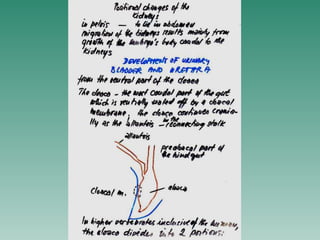 Positional changes of the
kidneys
in pelvis — to lie in abdomen
migration of the kidneys results mainly from
growth of the embryo's body caudal to the
kidneys
DEVELOPMENT OF URINARY
BLADDER AND URETHRA
from the ventral part of the cloaca
The cloaca - the most caudal part of the gut
which is ventrally walled off by a cloacal
membrane; the cloaca continues cranial-
ly as the allantois - the connecting stalk
allantois
precloacal part of
the hindgut
cloacal m.
cloaca
In higher vertebrates inclusive of the human,
the cloaca divides into 2 portions: